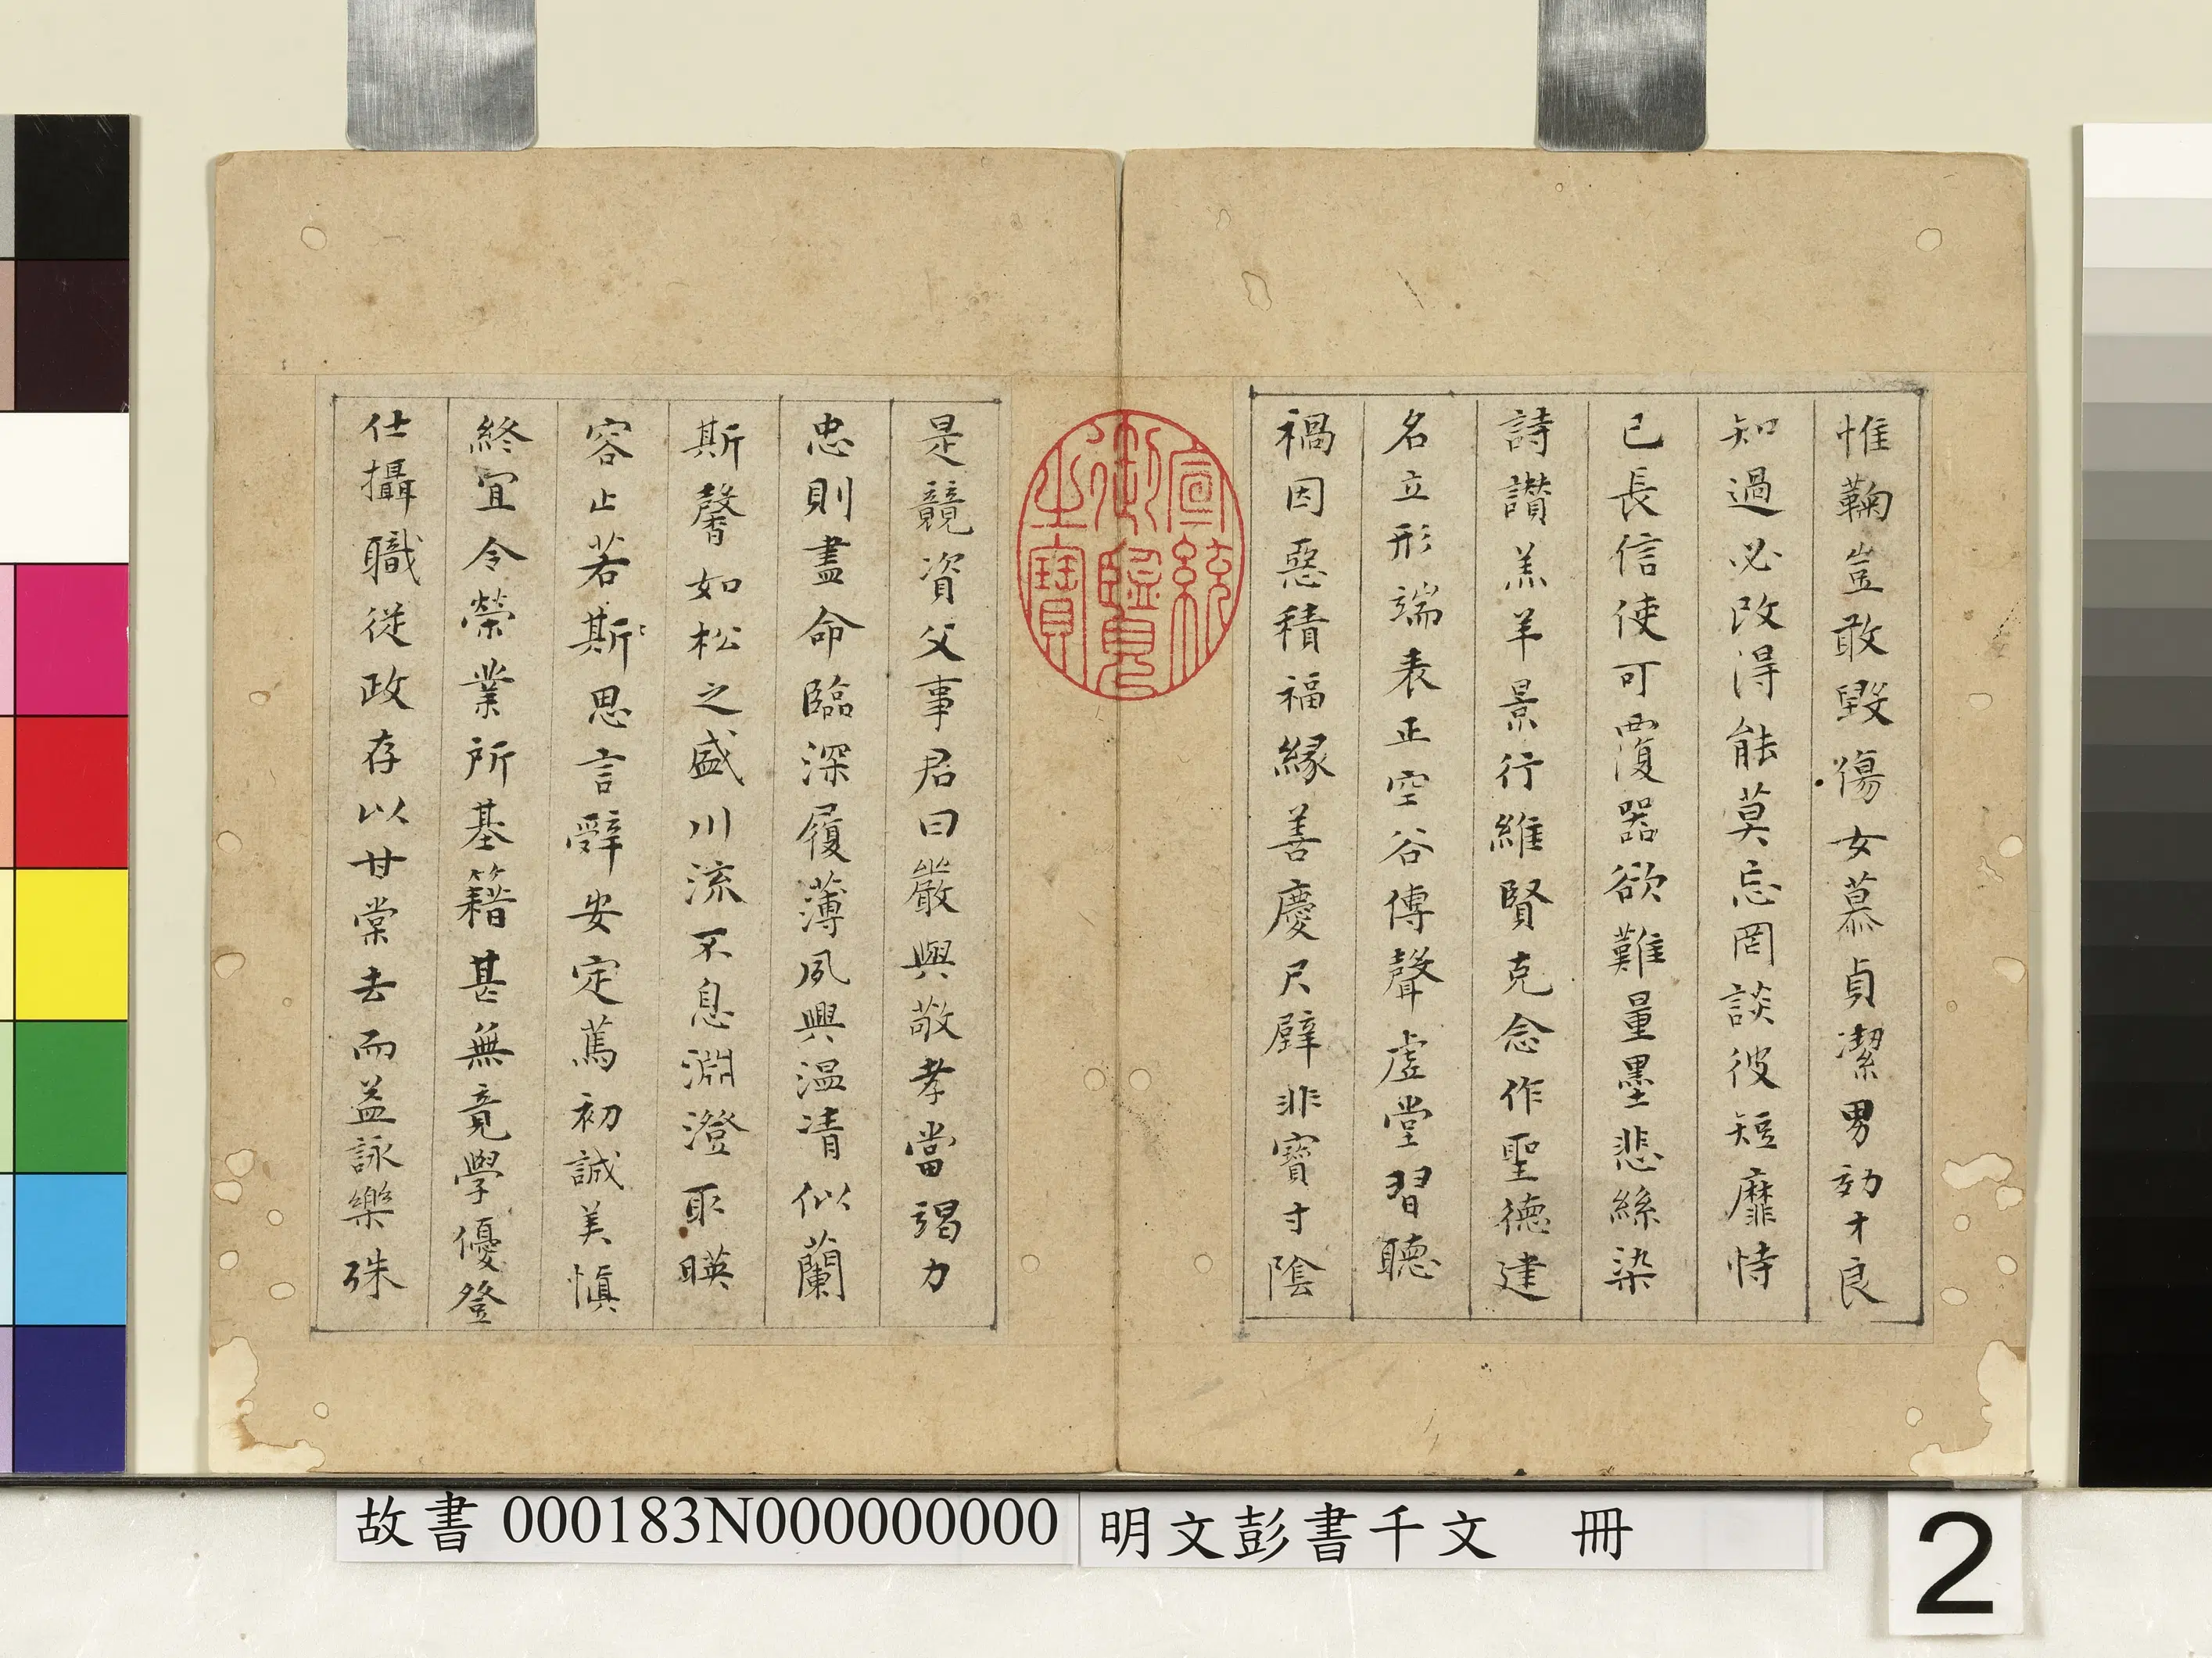 惟鞠豈敢毀傷女慕貞潔男効才良
知過必改得能莫忘罔談彼短靡恃
己長信使可覆器欲難量墨悲絲染
詩讚羔羊景行維賢克念作聖德建
名立形端表正空谷傳聲虛堂習聽
禍因惡積福緣善慶尺璧非寶寸陰
是競資父事君曰嚴與敬孝當竭力
忠則盡命臨深履薄夙興温凊似蘭
斯馨如松之盛川流不息淵澄取暎
容止若斯思言辭安定篤初誠美慎
終宜令榮業所基籍甚無竟學優登
仕攝職從政存以甘棠去而益詠樂殊
宣統御覽之寶
故書 000183N000000000 明文彭書千文 冊
2